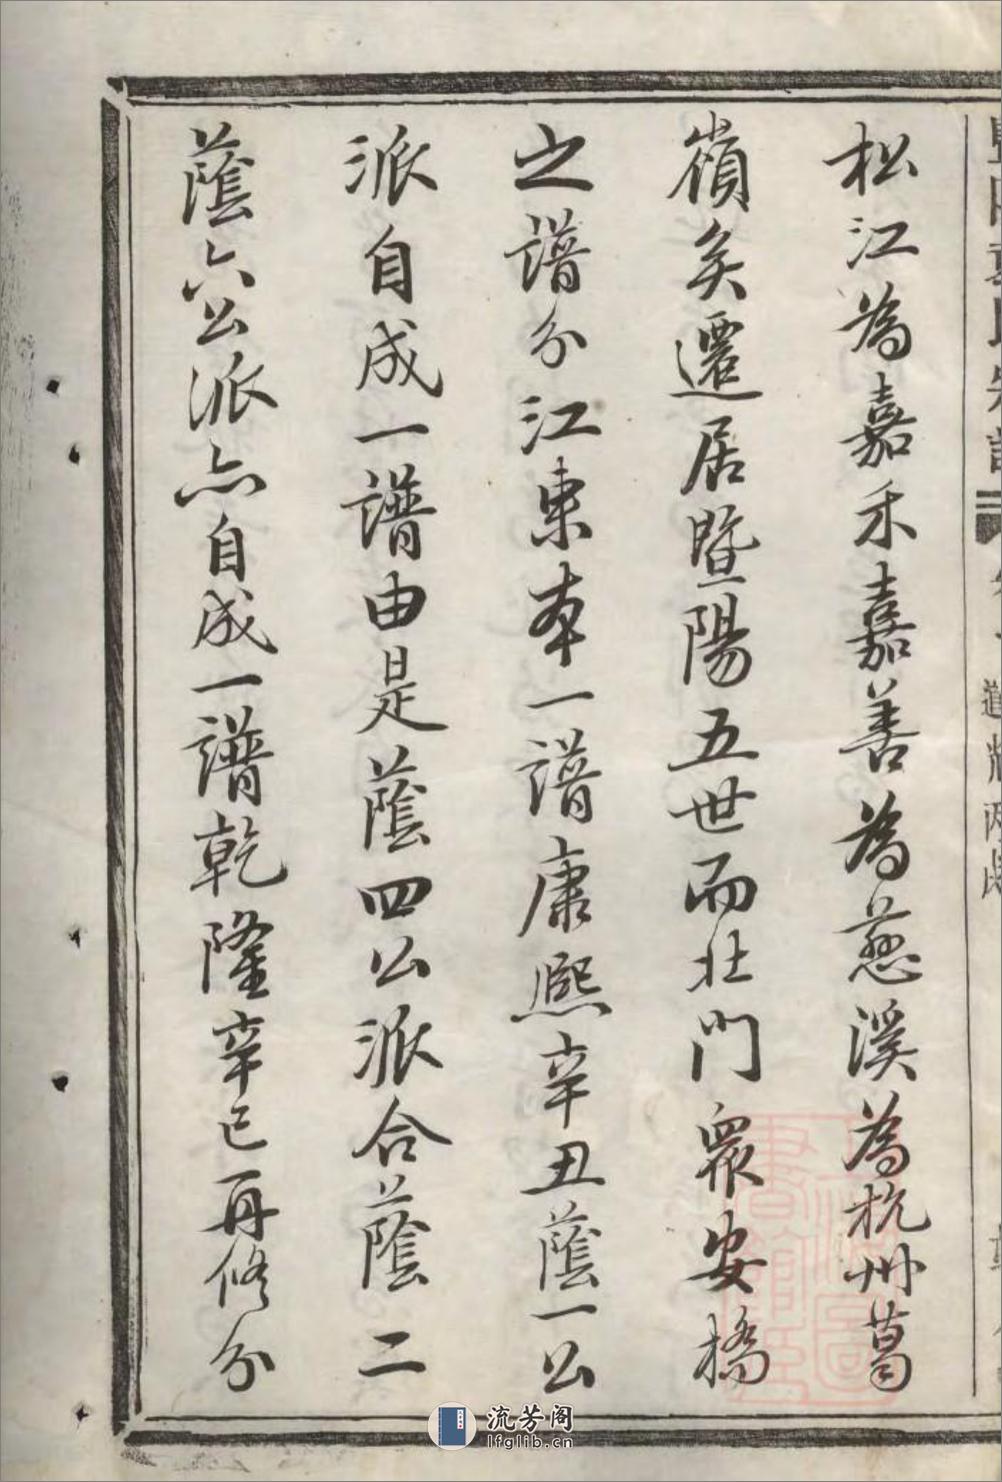 松江為嘉禾嘉善為慈溪為杭州葛
嶺矣遷居暨陽五世而壯門眾安橋
之譜分江東本一譜康熙辛丑蔭一公
派自成一譜由是蔭四公派合蔭二
蔭六公派亦自成一譜乾隆辛巳再修分
流芳阁
lfglib.cn